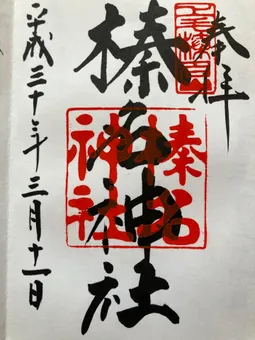 奉拝
榛名神社
榛名神社
平成三十年三月十一日